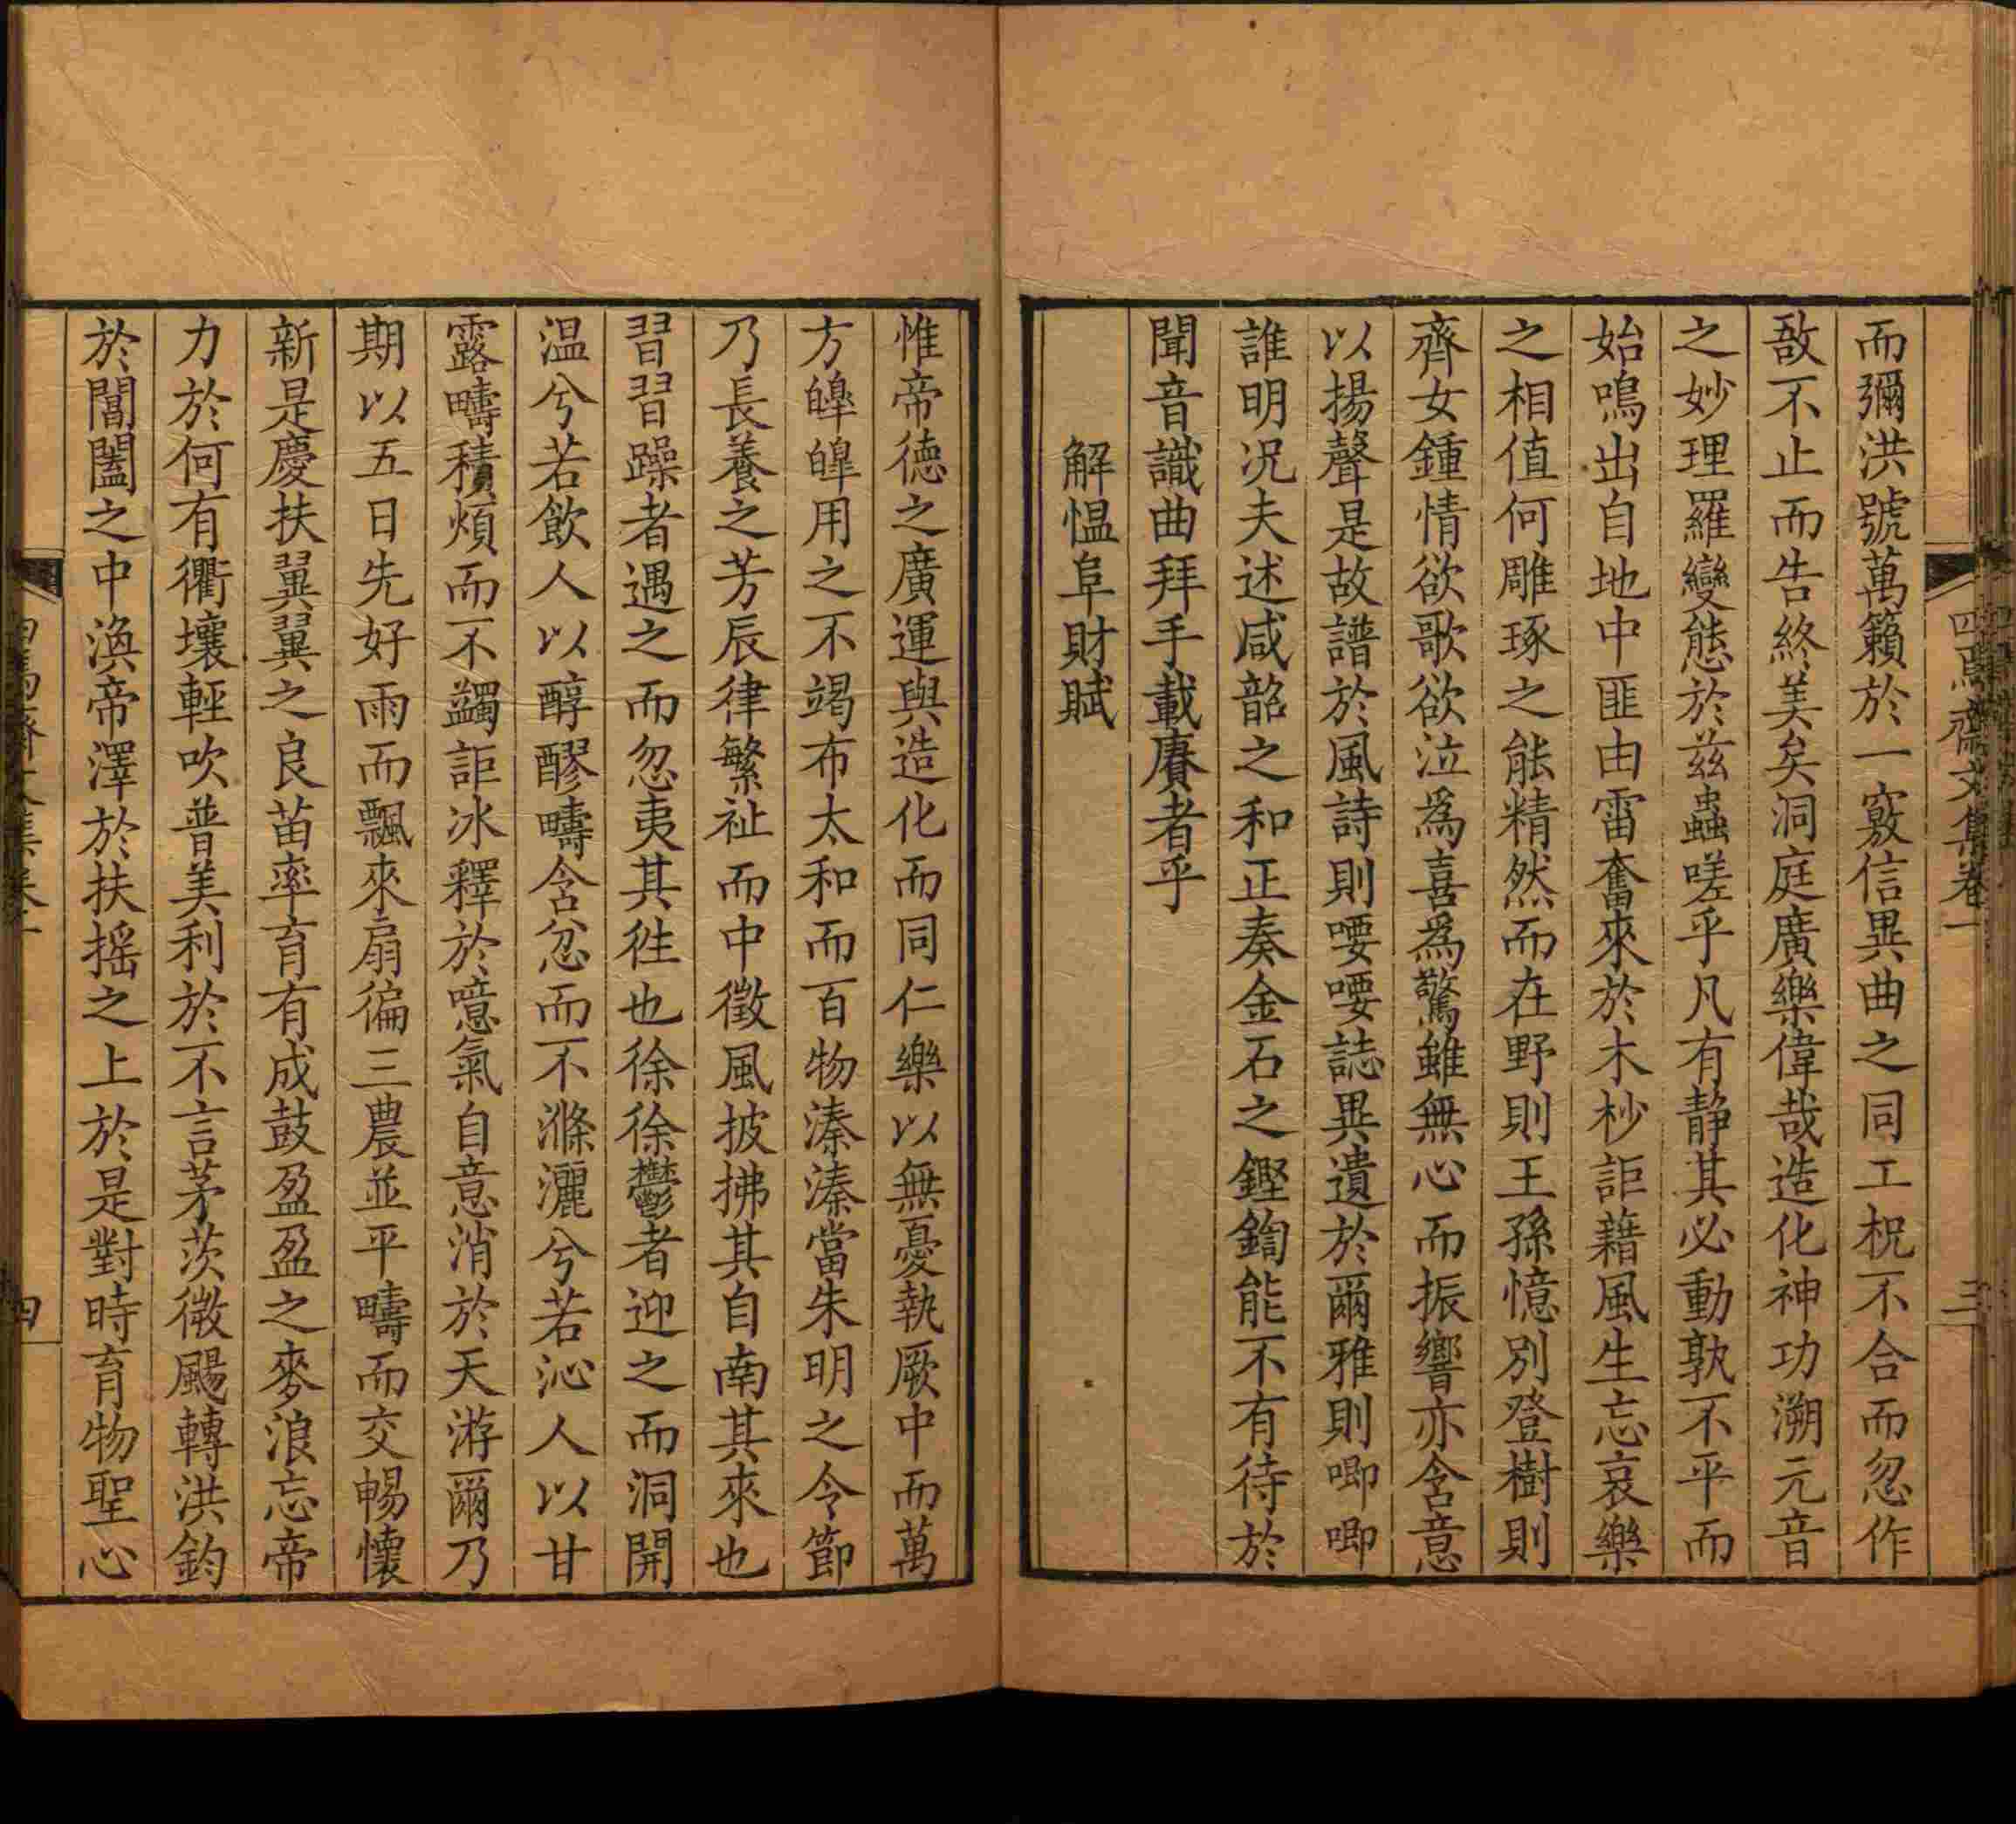 四焉齋文集卷一
三
而彌洪號萬籟於一竅信異曲之同工柷不合而忽作
敔不止而告終美矣洞庭廣樂偉哉造化神功溯元音
之妙理羅變態於茲蟲嗟乎凡有静其必動孰不平而
始鳴出自地中匪由雷奮來於木杪詎藉風生忘哀樂
之相值何雕琢之能精然而在野則王孫憶別登樹則
齊女鍾情欲歌欲泣爲喜爲驚雖無心而振響亦含意
以揚聲是故譜於風詩則喓喓誌異遺於爾雅則唧唧
誰明况夫述咸韶之和正奏金石之鏗鍧能不有待於
聞音識曲拜手載賡者乎
解愠阜財賦
惟帝德之廣運與造化而同仁樂以無憂執厥中而萬
方皥皥用之不竭布太和而百物溱溱當朱明之令節
乃長養之芳辰律繁祉而中徵風披拂其自南其來也
習習躁者遇之而忽夷其徃也徐徐鬱者迎之而洞開
温兮若飲人以醇醪疇含忿而不滌灑兮若沁人以甘
露疇積煩而不蠲詎冰釋於噫氣自意消於天游爾乃
期以五日先好雨而飄來扇徧三農並平疇而交暢懷
新是慶扶翼翼之良苗率育有成鼓盈盈之麥浪忘帝
力於何有衢壤輕吹普美利於不言茅茨微颺轉洪鈞
於閶闔之中渙帝澤於扶摇之上於是對時育物聖心
四焉齋文集卷一
四